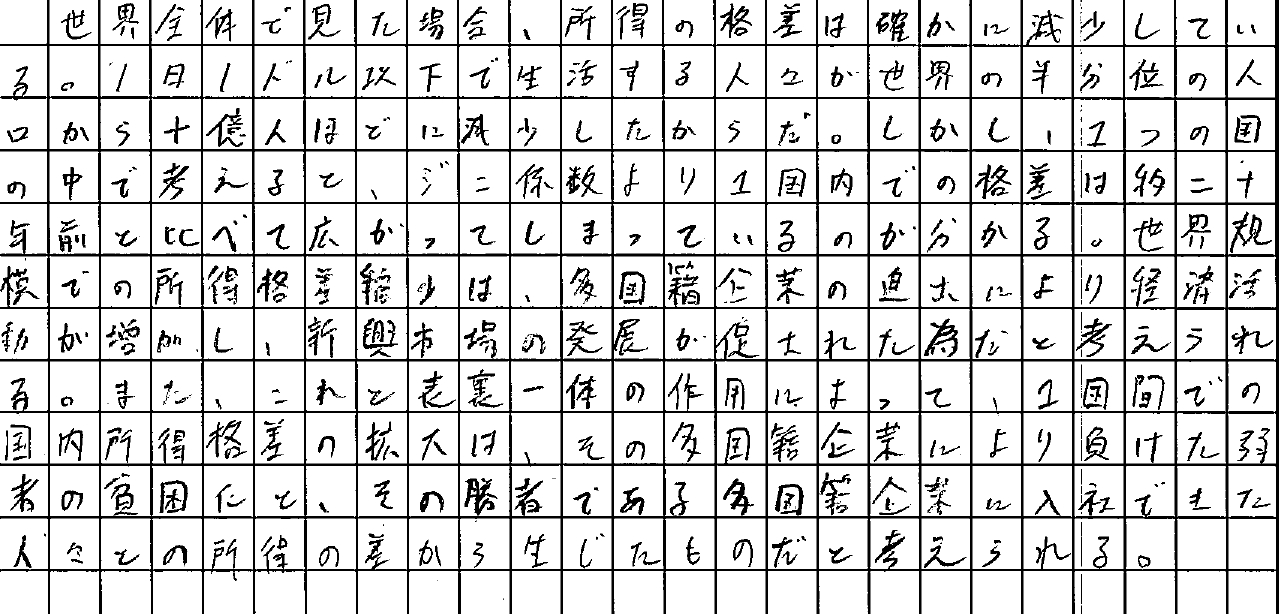 世界全体で見た場合、所得の格差は確かに減少してい
る。1日1ドル以下で生活する人々が世界の半分位の人
口から十億人ほどに減少したからだ。しかし、1つの国
の中で考えると、ジニ係数より1国内での格差は約二十
年前と比べて広がってしまっているのが分かる。世界規
模での所得格差縮少は、多国籍企業の進出により経済活
動が増加し、新興市場の発展が促された為だと考えられ
る。また、これと表裏一体の作用によって、1国間での
国内所得格差の拡大は、その多国籍企業により負けた弱
者の貧困化と、その勝者である多国籍企業に入社できた
人々との所得の差から生じたものだと考えられる。